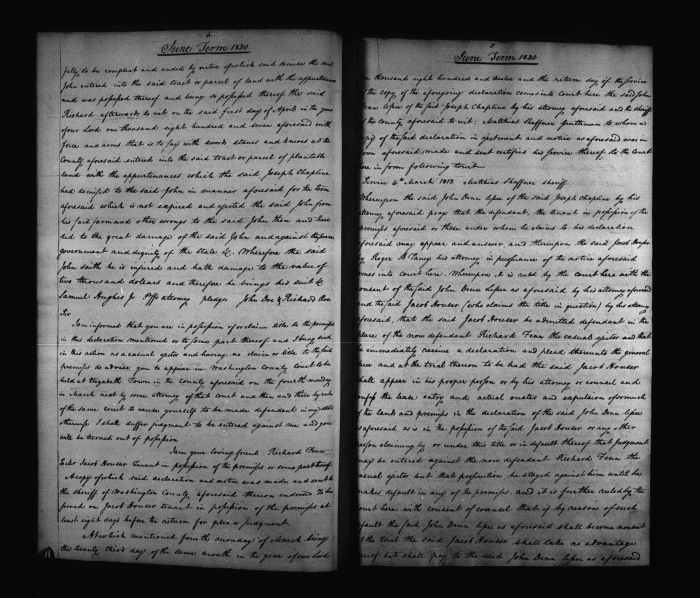 4
June Term 1820
fully to be compleat and ended by virtue of which said demise the said
John entered into the said tract or parcel of land with the appurtenances
and was possessed thereof and being so possessed thereof the said
Richard afterwards to wit on the said first day of April in the year
of our Lord one thousand eight hundred and seven aforesaid with
force and arms that is to say with words staves and knives at the
County aforesaid entered into the said tract or parcel of plantable
land with the appurtenances which the said Joseph Chapline
had demised to the said John in manner aforesaid for the term
aforesaid which is not expired and ejected the said John from
his said farm and other wrongs to the said John then and there
did to the great damage of the said John and against the peace
government and dignity of the State &c. Wherefore the said
John saith he is injured and hath damage to the value of
two thousand dollars and therefore he brings his suit &c
Samuel Hughes Jr Plff attorney pledges John Doe & Richard Roe
Sir
I am informed that you are in possession of or claim title to the premises
in this declaration mentioned or to some part thereof and I being sued
in this action as a casual ejector and having no claim or title to the said
premises do advise you to appear in Washington County Court to be
held at Elizabeth Town in the county aforesaid on the fourth monday
in march next by some attorney of that court and then and there by rule
of the same court to cause yourself to be made defendant in my stead
otherwise I shall suffer judgment to be entered against me and you
will be turned out of possession
I am your loving friend Richard Fenn
To Mr Jacob Houser tenant in possession of the premises or some part thereof
A copy of which said declaration and notice was made and sent to
the sheriff of Washington County aforesaid thereon endorsed to be
served on Jacob Houser tenant in possession of the premises at
least eight days before the return for plea or judgment.
At which mentioned fourth monday of March being
the twenty third day of the same month in the year of our Lord
5
June Term 1820
one thousand eight hundred and twelve and the return day of the service
of the copy of the aforegoing declaration comes into Court here the said John
Denn lessee of the said Joseph Chapline by his attorney aforesaid and the sheriff
of the County aforesaid to wit: Matthias Shaffner gentleman to whom a
copy of the said declaration in ejectment and notice as aforesaid was in
form aforesaid made and sent certifies his service thereof to the Court
here in form following to wit
Service 4th March 1812 Matthias Shaffner sheriff
Whereupon the said John Denn lessee of the said Joseph Chapline by his
attorney aforesaid prays that the defendant, the tenant in possession of the
premises aforesaid or those under whom he claims to his declaration
aforesaid may appear and answer, and thereupon the said Jacob Houser
by Roger B Taney his attorney in pursuance of the notice aforesaid
comes into court here. Whereupon it is ruled by the court here with the
consent of the said John Denn lessee as aforesaid by his attorney aforesaid
and the said Jacob Houser (who claims the title in question) by his attorney
aforesaid, that the said Jacob Houser be admitted defendant in the
place of the now defendant Richard Fenn the casual ejector and that
he immediately receive a declaration and plead thereunto the general
issue and at the trial thereon to be had the said Jacob Houser
shall appear in his proper person or by his attorney or counsel and
confess the lease entry and actual ouster and expulsion of so much
of the land and premises in the declaration of the said John Denn lessee
aforesaid as is in the possession of the said Jacob Houser or any other
person claiming by or under his title or in default thereof that judgment
may be entered against the now defendant Richard Fenn the
casual ejector but that prosecution be stayed against him until he
makes default in any of the premises and it is further ruled by the
court here with consent of counsel that if by reason of such
default the said John Denn lessee as aforesaid shall become nonsuit
at the trial the said Jacob Houser shall take no advantage
thereof but shall pay to the said John Denn lessee as aforesaid